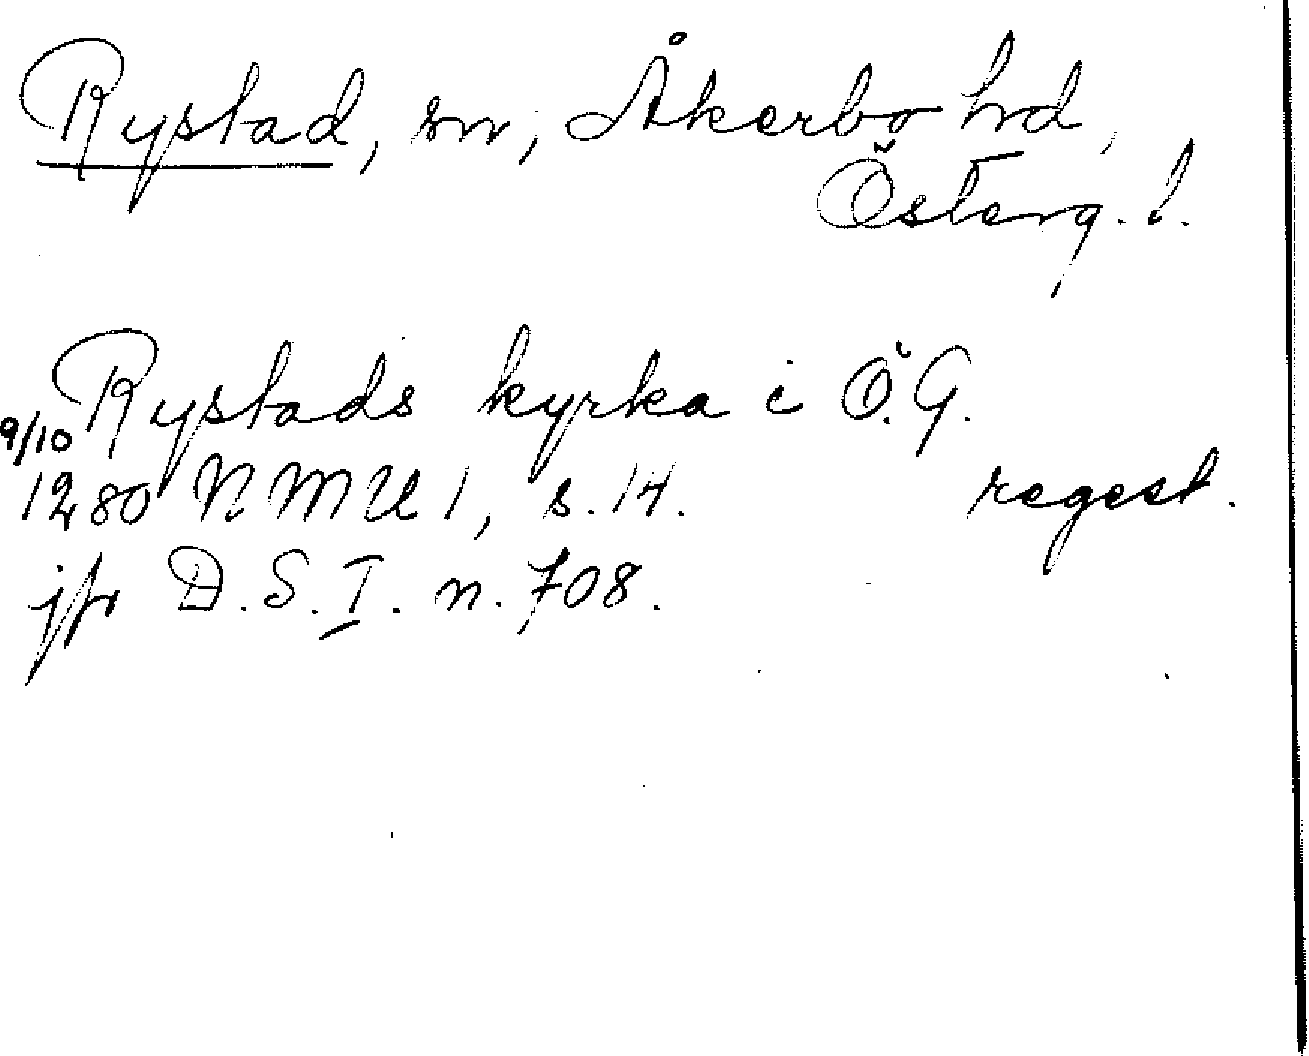 Rystad, sn, Åkerbo hd,
Österg. l.
Rystads kyrka i Ö.G.
9/10
1280 NMU 1, s. 14. regest.
jfr D.S. I. n. 708.